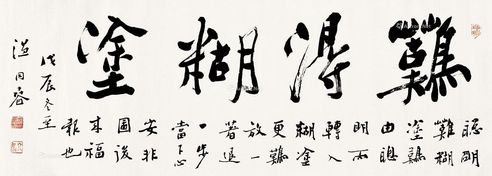 難得糊塗
聰明
難糊
塗難
由聰
明而
轉入
糊塗
更難
放一
著退
一步
當下心
安非
圖後
來福
報也
戊辰冬至